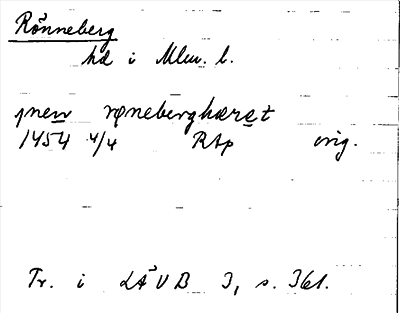 Rönneberg
hd i Mlm. l.
jnen rønneberghæret
1454 4/4 RAp orig.
Tr. i LÄUB 3, s. 361.